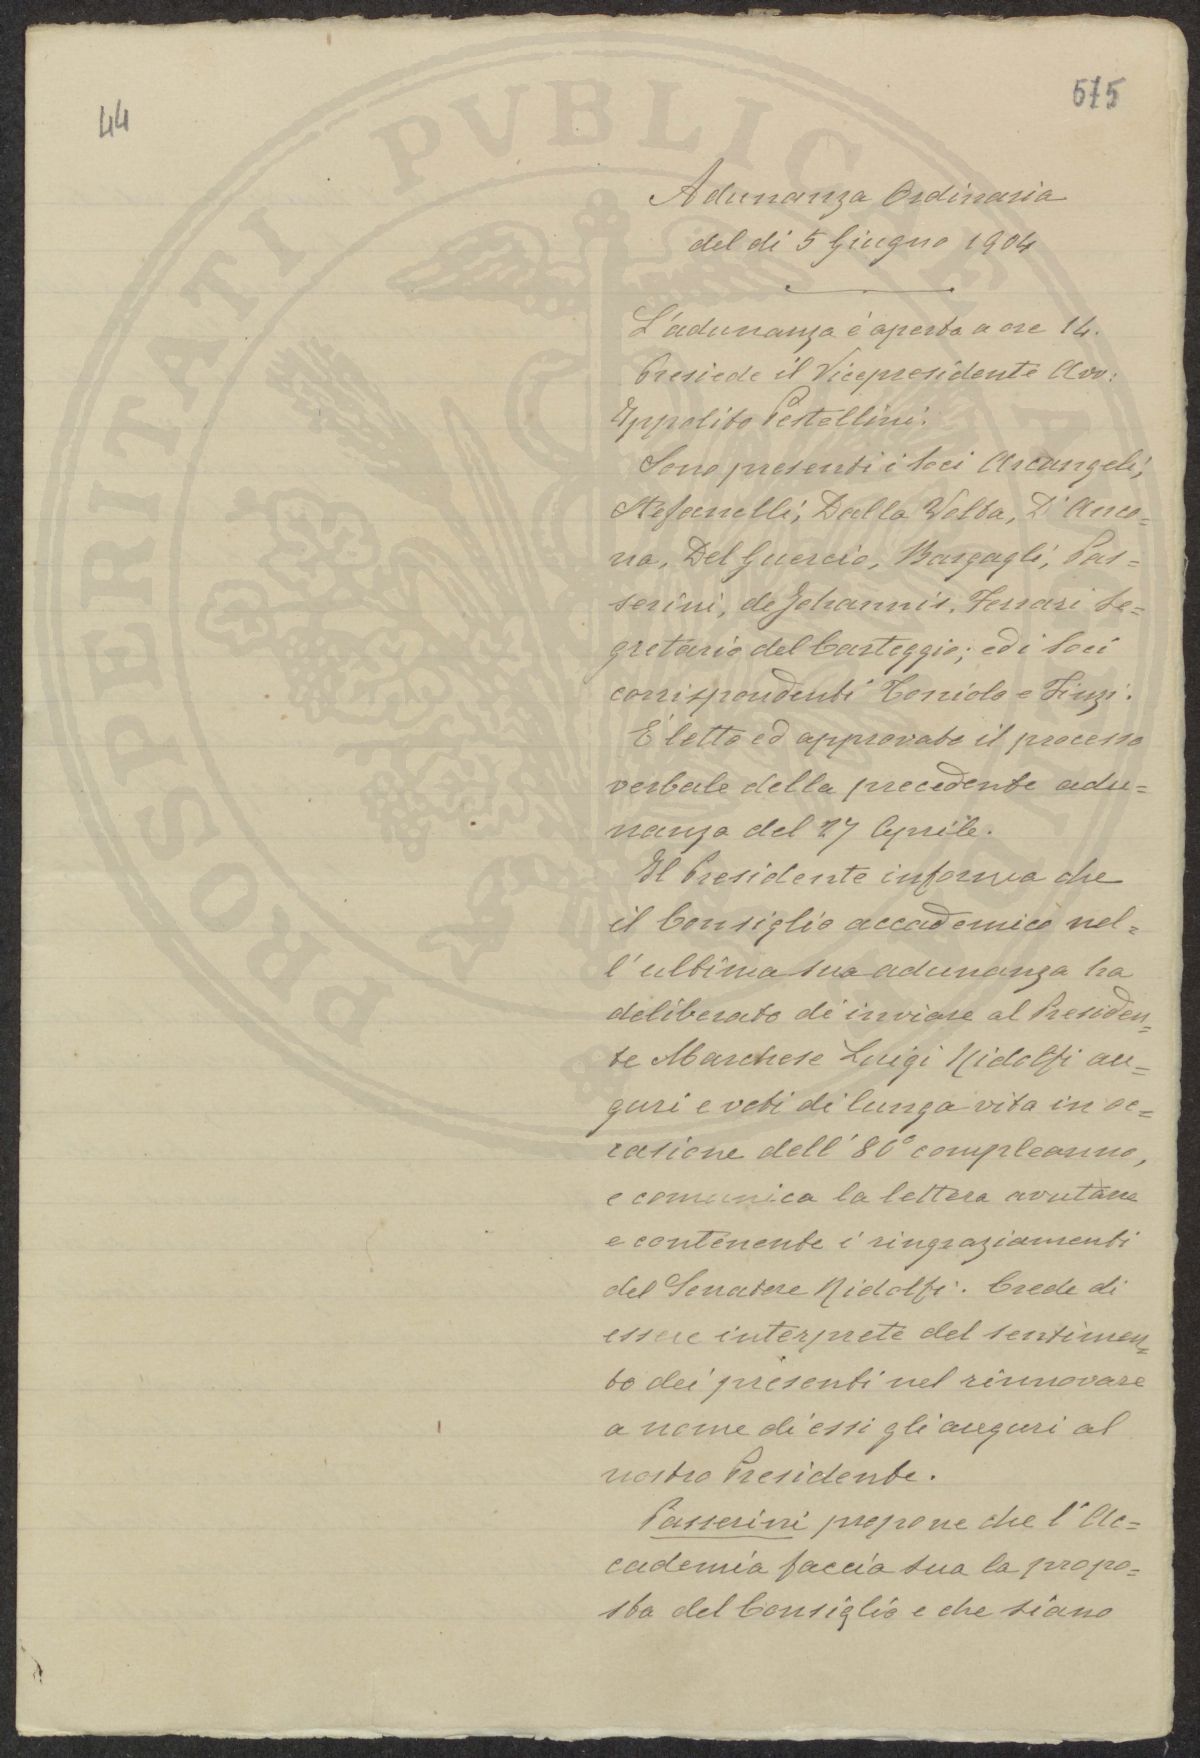 44
575
Adunanza Ordinaria
del dì 5 Giugno 1904
L'adunanza è aperta a ore 14.
Presiede il Vicepresidente Avv:
Yppolito Pestellini.
Sono presenti i Soci Arcangeli,
Stefanelli, Dalla Volta, D'Anco=
na, Del Guercio, Bargagli, Pas=
serini, de Johannis, Ferrari Se=
gretario del Carteggio; ed i Soci
corrispondenti Toniolo e Finzi.
E' letto ed approvato il processo
verbale della precedente adu=
nanza del 27 Aprile.
Il Presidente informa che
il Consiglio accademico nel=
l'ultima sua adunanza ha
deliberato di inviare al Presiden=
te Marchese Luigi Ridolfi au=
guri e voti di lunga vita in oc=
casione dell'80° compleanno,
e comunica la lettera avutane
e contenente i ringraziamenti
del Senatore Ridolfi. Crede di
essere interprete del sentimen=
to dei presenti nel rinnovare
a nome di essi gli auguri al
nostro Presidente.
Passerini propone che l'Ac=
cademia faccia sua la propo=
sta del Consiglio e che siano
PROSPERITATI PVBLICAE